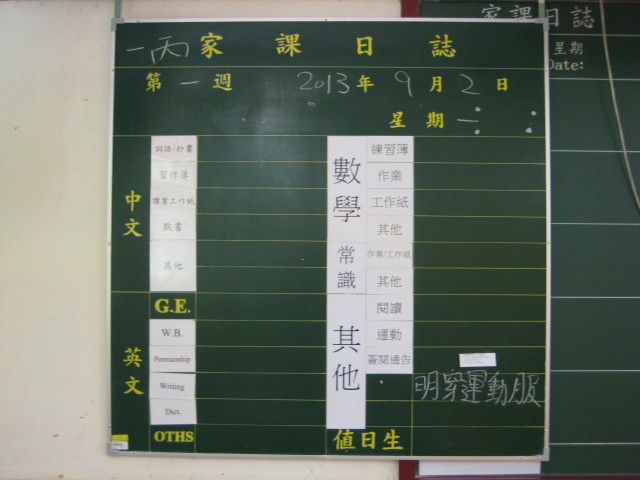 一丙家課日誌
第一週 2013年9月2日
星期一
中文
詞語/抄書
習作簿
讀默書
其他
英文
G.E.
W.B.
Penmanship
Writing
Dict.
OTHS
數學
練習簿
作業
工作紙
其他
常識
作業/工作紙
其他
其他
閱讀
運動
簽閱通告
明穿運動服
值日生
家課日誌
星期
Date: